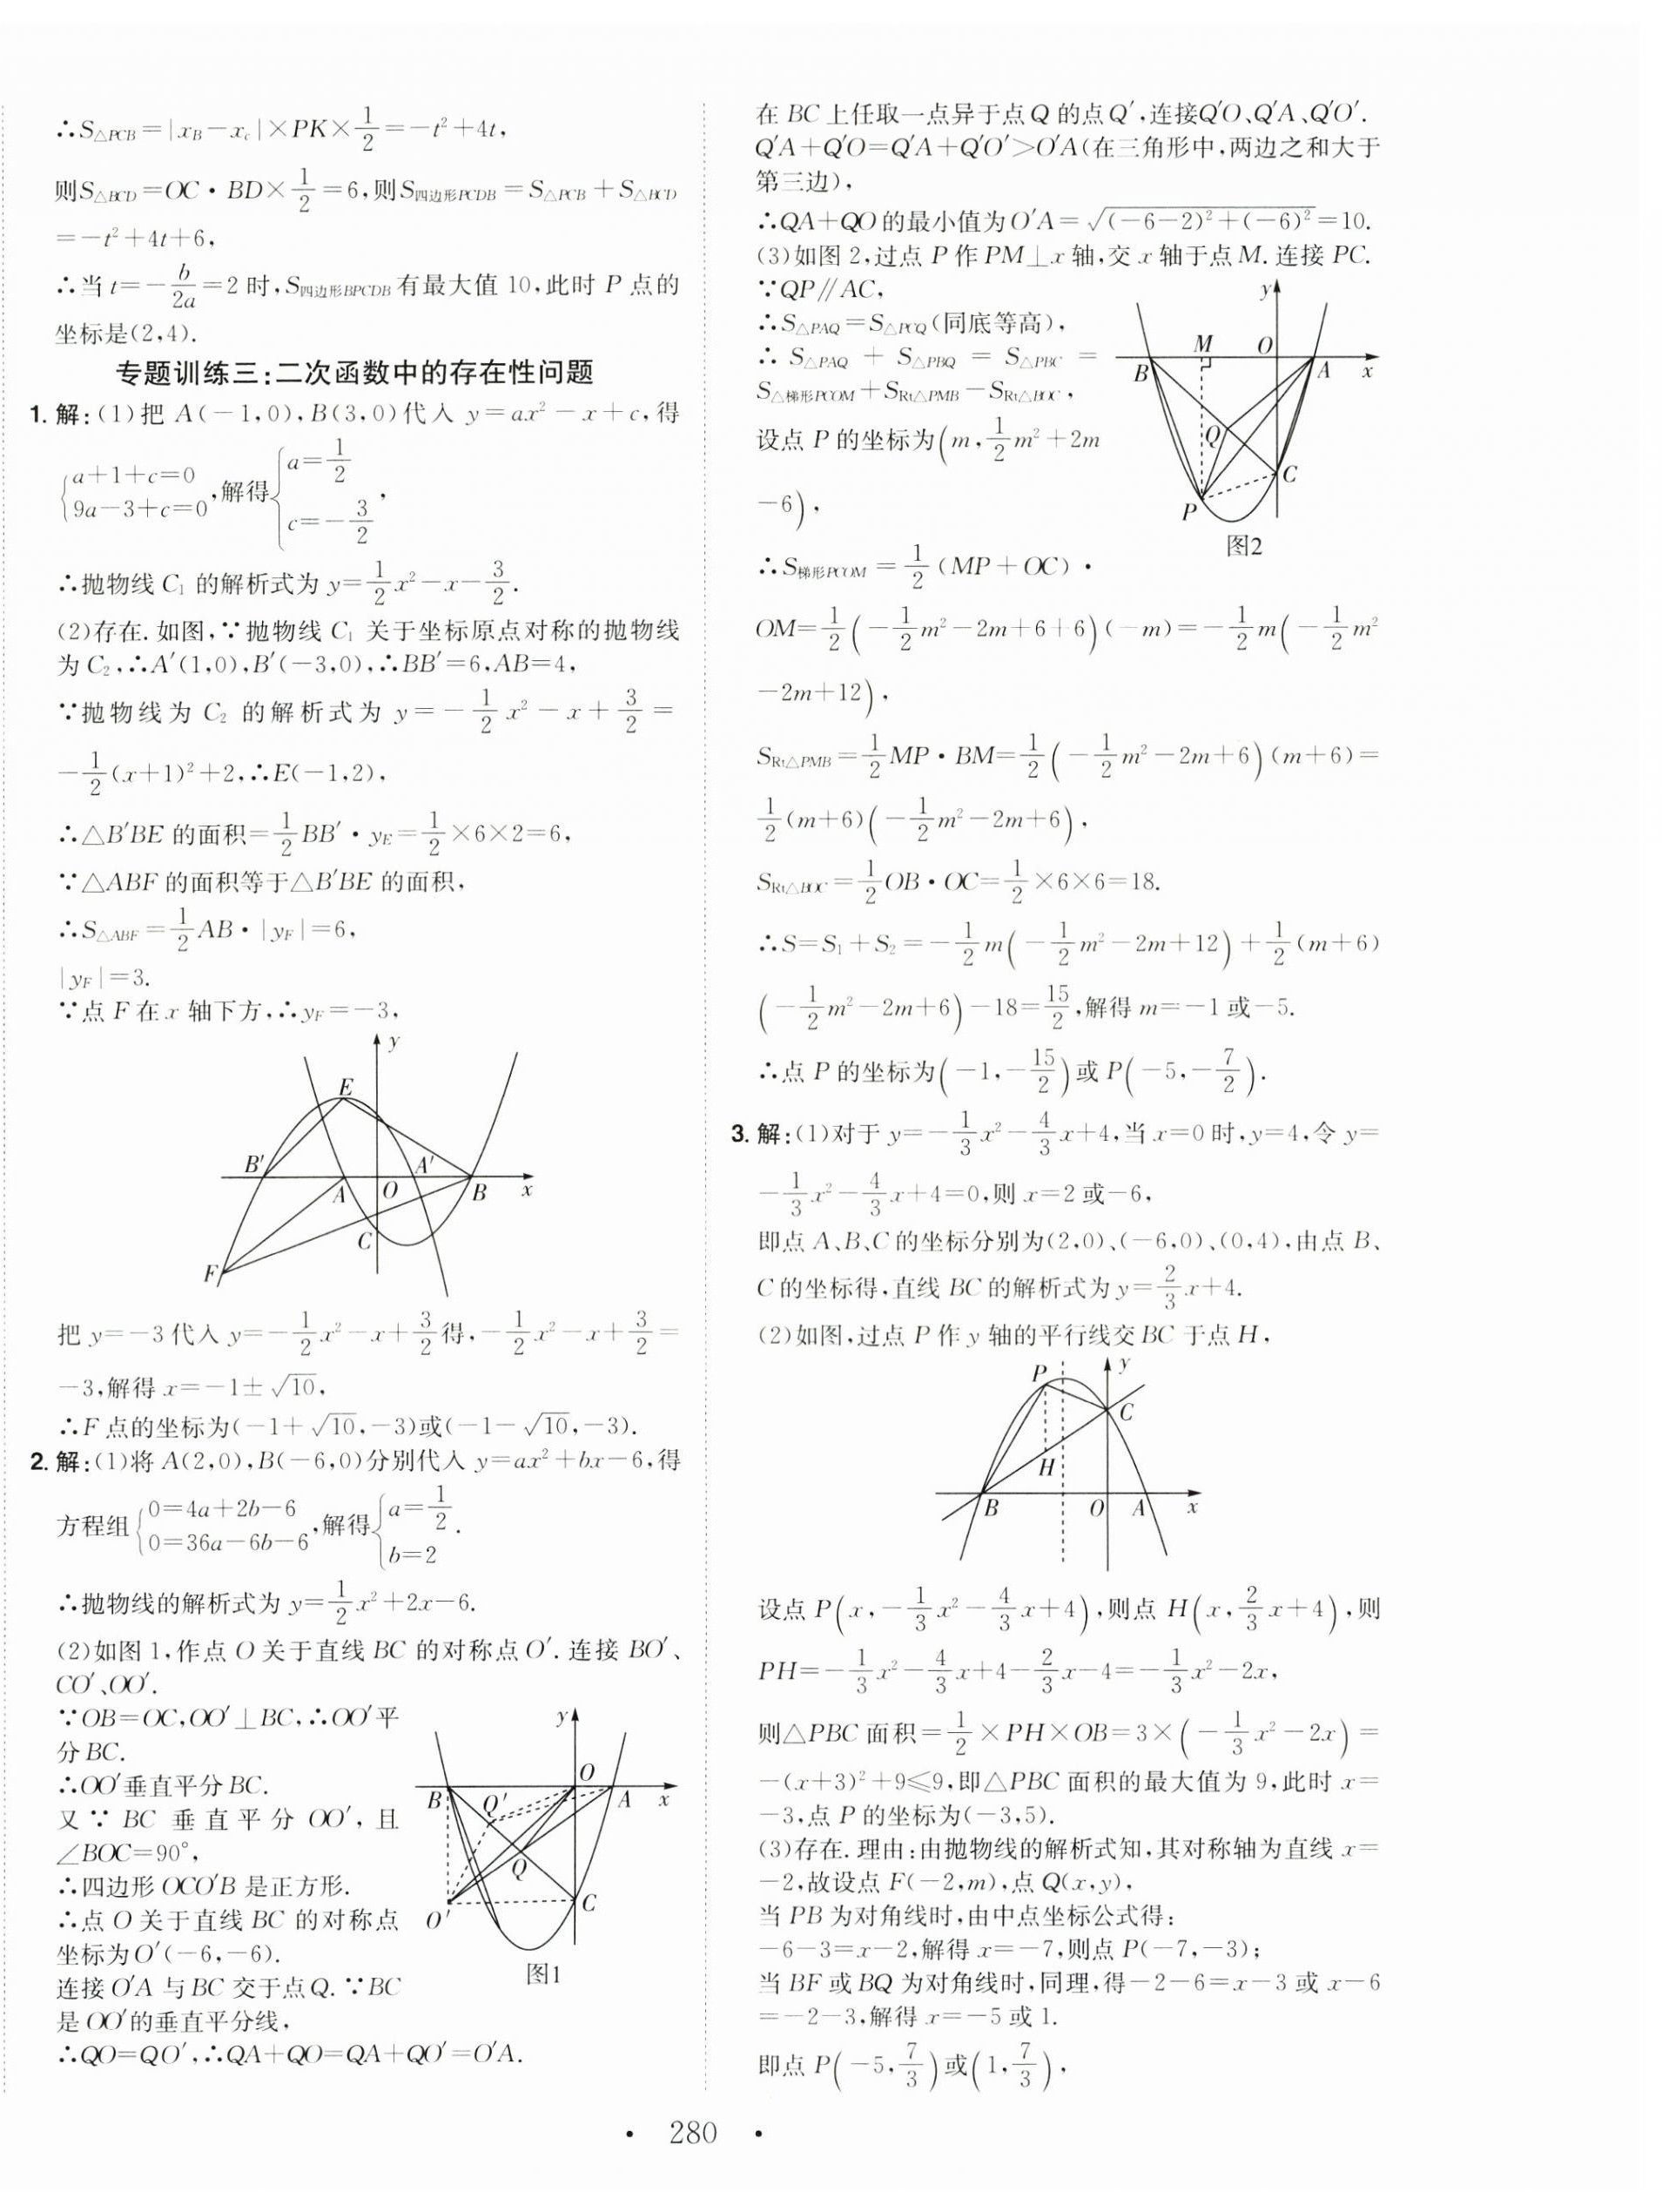 ∴S△PCB=|xB-xc|×PK×1/2=-t²+4t,
则S△BCD=OC·BD×1/2=6,则S四边形PCDB=S△PCB+S△BCD
=-t²+4t+6,
∴当t=-b/2a=2时,S四边形BPCDB有最大值10,此时P点的
坐标是(2,4).
专题训练三:二次函数中的存在性问题
1.解:(1)把A(-1,0),B(3,0)代入y=ax²-x+c,得
{a+1+c=0
9a-3+c=0,解得{a=1/2
c=-3/2,
∴抛物线C₁的解析式为y=1/2x²-x-3/2.
(2)存在.如图,∵抛物线C₁关于坐标原点对称的抛物线
为C₂,∴A′(1,0),B′(-3,0),∴BB′=6,AB=4,
∵抛物线为C₂的解析式为y=-1/2x²-x+3/2=
-1/2(x+1)²+2,∴E(-1,2),
∴△B′BE的面积=1/2BB′·yE=1/2×6×2=6,
∵△ABF的面积等于△B′BE的面积,
∴S△ABF=1/2AB·|yF|=6,
|yF|=3.
∵点F在x轴下方,∴yF=-3,
y
E
B′
A′
A
O
B
x
C
F
把y=-3代入y=-1/2x²-x+3/2得,-1/2x²-x+3/2=
-3,解得x=-1±√10,
∴F点的坐标为(-1+√10,-3)或(-1-√10,-3).
2.解:(1)将A(2,0),B(-6,0)分别代入y=ax²+bx-6,得
方程组{0=4a+2b-6
0=36a-6b-6,解得{a=1/2
b=2.
∴抛物线的解析式为y=1/2x²+2x-6.
(2)如图1,作点O关于直线BC的对称点O′.连接BO′、
CO′、OO′.
∵OB=OC,OO′⊥BC,∴OO′平
分BC.
∴OO′垂直平分BC.
又∵BC垂直平分OO′,且
∠BOC=90°,
∴四边形OCO′B是正方形.
∴点O关于直线BC的对称点
坐标为O′(-6,-6).
连接O′A与BC交于点Q.∵BC
是OO′的垂直平分线,
∴QO=QO′,∴QA+QO=QA+QO′=O′A.
y
O
B
Q′
A
x
Q
O′
C
图1
在BC上任取一点异于点Q的点Q′,连接Q′O、Q′A、Q′O′.
Q′A+Q′O=Q′A+Q′O′>O′A(在三角形中,两边之和大于
第三边),
∴QA+QO的最小值为O′A=√((-6-2)²+(-6)²)=10.
(3)如图2,过点P作PM⊥x轴,交x轴于点M.连接PC.
∵QP∥AC,
∴S△PAQ=S△PCQ(同底等高),
∴S△PAQ+S△PBQ=S△PBC=
S△梯形PCOM+SRt△PMB-SRt△BOC,
设点P的坐标为(m,1/2m²+2m
-6),
∴S梯形PCOM=1/2(MP+OC)·
y
M
O
B
A
x
Q
C
P
图2
OM=1/2(-1/2m²-2m+6+6)(-m)=-1/2m(-1/2m²
-2m+12),
SRt△PMB=1/2MP·BM=1/2(-1/2m²-2m+6)(m+6)=
1/2(m+6)(-1/2m²-2m+6),
SRt△BOC=1/2OB·OC=1/2×6×6=18.
∴S=S₁+S₂=-1/2m(-1/2m²-2m+12)+1/2(m+6)
(-1/2m²-2m+6)-18=15/2,解得m=-1或-5.
∴点P的坐标为(-1,-15/2)或P(-5,-7/2).
3.解:(1)对于y=-1/3x²-4/3x+4,当x=0时,y=4,令y=
-1/3x²-4/3x+4=0,则x=2或-6,
即点A、B、C的坐标分别为(2,0)、(-6,0)、(0,4),由点B、
C的坐标得,直线BC的解析式为y=2/3x+4.
(2)如图,过点P作y轴的平行线交BC于点H,
P
y
C
H
B
O
A
x
设点P(x,-1/3x²-4/3x+4),则点H(x,2/3x+4),则
PH=-1/3x²-4/3x+4-2/3x-4=-1/3x²-2x,
则△PBC面积=1/2×PH×OB=3×(-1/3x²-2x)=
-(x+3)²+9≤9,即△PBC面积的最大值为9,此时x=
-3,点P的坐标为(-3,5).
(3)存在.理由:由抛物线的解析式知,其对称轴为直线x=
-2,故设点F(-2,m),点Q(x,y),
当PB为对角线时,由中点坐标公式得:
-6-3=x-2,解得x=-7,则点P(-7,-3);
当BF或BQ为对角线时,同理,得-2-6=x-3或x-6
=-2-3,解得x=-5或1.
即点P(-5,7/3)或(1,7/3),
· 280 ·